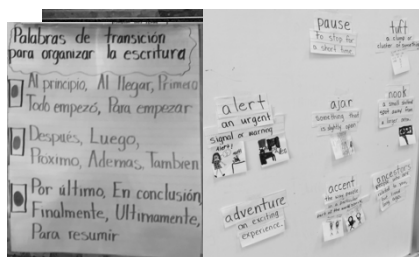 Palabras de transición
para organizar la escritura
Al principio, Al llegar, Primero
Todo empezó, Para empezar
Después, Luego,
Próximo, Ademas, Tambien
Por último, En conclusión,
Finalmente, Ultimamente,
Para resumir
pause
to stop for
a short time.
tuft
a clump or
cluster of
alert
an urgent
signal or warning
ajar
something that
is slightly open
nook
a small
adventure
an exciting
experience.
accent
the way people
in a particular
ancestors
people who are
related to you